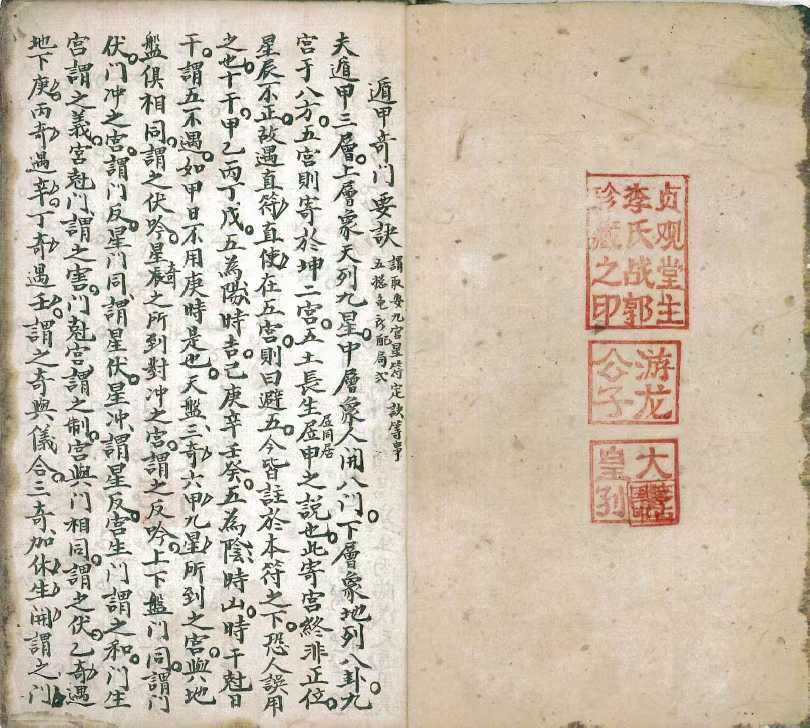 贞观堂主
李氏战郭
珍藏之印
游龙
公子
大
皇孙
遁甲奇门要訣
夫遁甲三層上層象天列九星中層象人開八門下層象地列八卦九
宮于八方五宮則寄於坤二宮五土長生屈申之說也此寄宮終非正位
屈同居
星辰不正故遇直符直使在五宮則曰避五今皆註於本符之下恐人誤用
之也十干甲乙丙丁戊五為陽時吉己庚辛壬癸五為陰時山時干尅日
干謂五不遇如甲日不用庚時是也天盤三奇六甲九星所到之宮與地
盤俱相同謂之伏吟奇星辰之所到對冲之宮謂之反吟上下盤門同謂門
伏門冲之宮謂門反星門同謂星伏星冲謂星反宮生門謂之和門生
宮謂之義宮尅門謂之害門尅宮謂之制宮與門相同謂之伏乙奇遇
地下庚丙奇遇辛丁奇遇壬謂之奇與儀合三奇加休生開謂之門